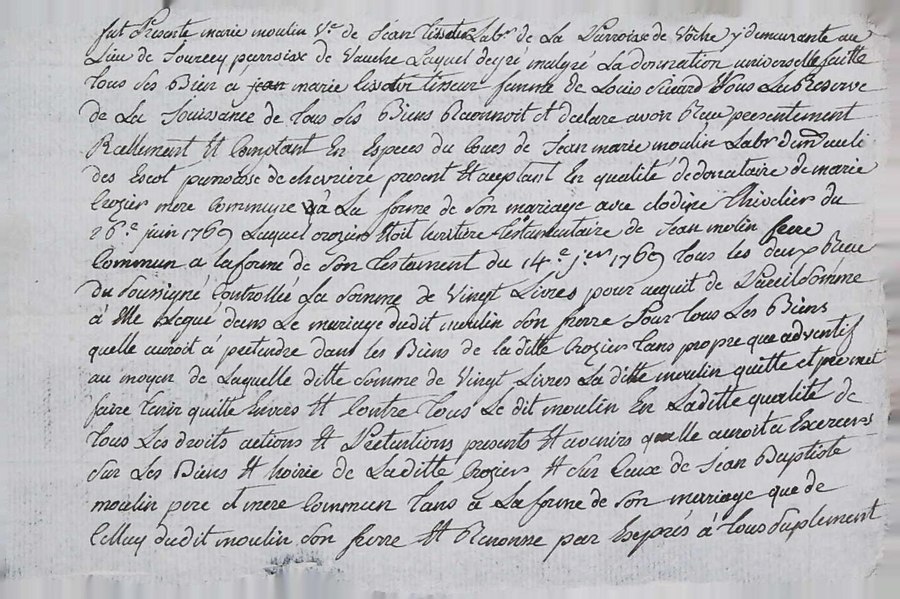 fut Presente marie moulin V.e de Jean tisseur Lab.r de La Parroise de Vôche y demurante au
Lieu de Sourcey parroise de Vauche Laquel de gré malgré La donnation universelle faitte
tous ses Bien à jean marie tisseur femme de Louis Sicard Sous La Reserve
de La Jouissance de tous ses Biens Reconnoit et declare avoir Reçu presentement
Reellement Et Comptant En Especes du Cours de Jean marie moulin Lab.r du
des Escot parroisse de chevriere present Et aceptant En qualité de donataire de marie
Crozier mere Commune à La forme de Son mariage avec clodine Thiolier du
26.e juin 1769 Laquel crozier Etoit heritiere testamentaire de Jean molin frere
Commun a La forme de Son testament du 14.e j.er 1769 tous les deux Reçu
du Soussigné Controllé La Somme de Vingt Livres pour aquit de Pareil Somme
à Elle Legué dans Le mariage dudit moulin Son frere Pour tous Les Biens
quelle auroit à pretendre dans les Biens de la ditte Crozier tans propre que adventif
au moyen de Laquelle ditte Somme de Vingt Livres La ditte moulin quitte et promet
faire tenir quitte Envers Et Contre tous Le dit moulin En Laditte qualité de
tous Les droits actions Et Pretentions presents Et avenirs quelle auroit à Exercers
Sur Les Biens Et hoirie de Laditte Crozier Et Sur Ceux de Jean Baptiste
moulin pere et mere Commun tans à La forme de Son mariage que de
Celluy dudit moulin Son frere Et Renonne par Exprés à tous Suplement